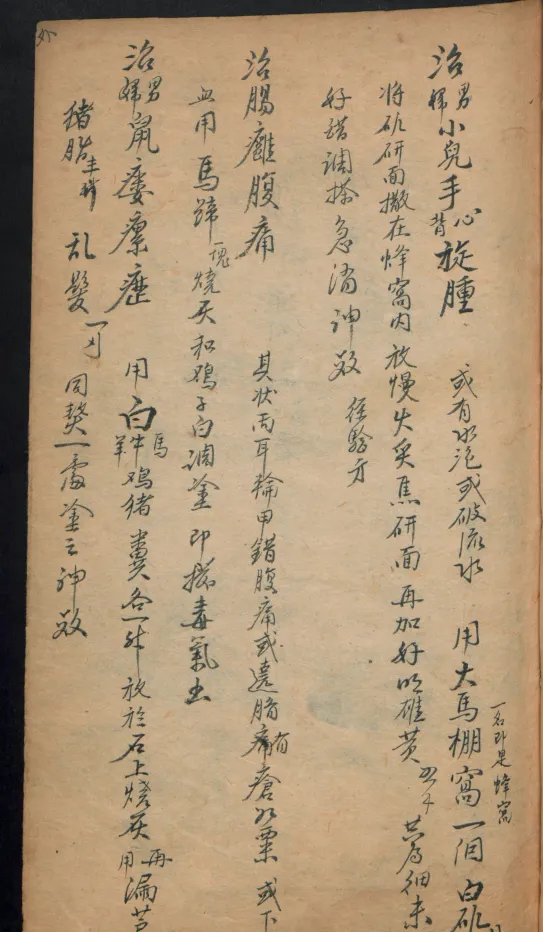 治男婦小兒手心背旋腫 或有水泡或破流水 用大馬棚窩一個 白矾
一名即是蜂窩
将矾研面撒在蜂窩内放慢火炙焦研面再加好明雄黄 共為細末
好醋調搽急消神效 經驗方
治腸癰腹痛 其状両耳輪甲錯腹痛或遶臍痛有瘡如粟或下
血用馬蹄一塊燒灰和鸡子白调塗即揺毒氣出
治男婦鼠瘻瘰癧 用白馬牛羊鸡猪糞各一升放於石上燒灰再用漏芦
猪脂 乱髮 同熬一處塗之神效